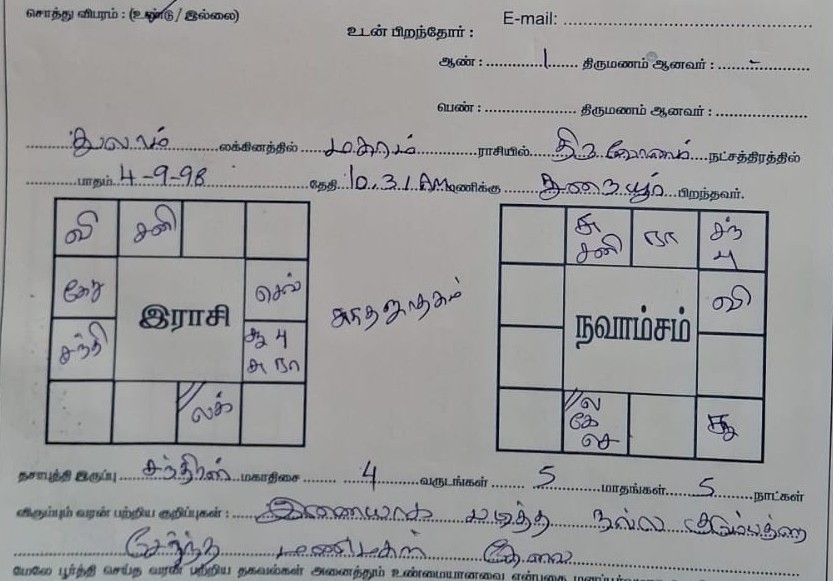 சொத்து விபரம் : (உண்டு / இல்லை)
E-mail: ........................
உடன் பிறந்தோர் :
ஆண் : 1 திருமணம் ஆனவர் : -
பெண் : திருமணம் ஆனவர் :
துலாம் லக்கினத்தில் மகரம் ராசியில் திருவோணம் நட்சத்திரத்தில்
பாதம் 4-9-98 தேதி 10.31 AM மணிக்கு துறையூர் பிறந்தவர்.
வி சனி
கேது
செவ்
சந்தி
சூ பு
சு நா
லக்
இராசி
சுத்தஜாதகம்
சு
சனி
நா
சந்
பு
வி
நவாம்சம்
ல
கே
செ
சூ
தசாபுத்தி இருப்பு சந்திரன் மகாதிசை 4 வருடங்கள் 5 மாதங்கள் 5 நாட்கள்
விரும்பும் வரன் பற்றிய குறிப்புகள் : இணையாக படித்த நல்ல குடும்பத்தை
சேர்ந்த மணமகள் தேவை
மேலே பூர்த்தி செய்த வரன் பற்றிய தகவல்கள் அனைத்தும் உண்மையானவை என்பதை